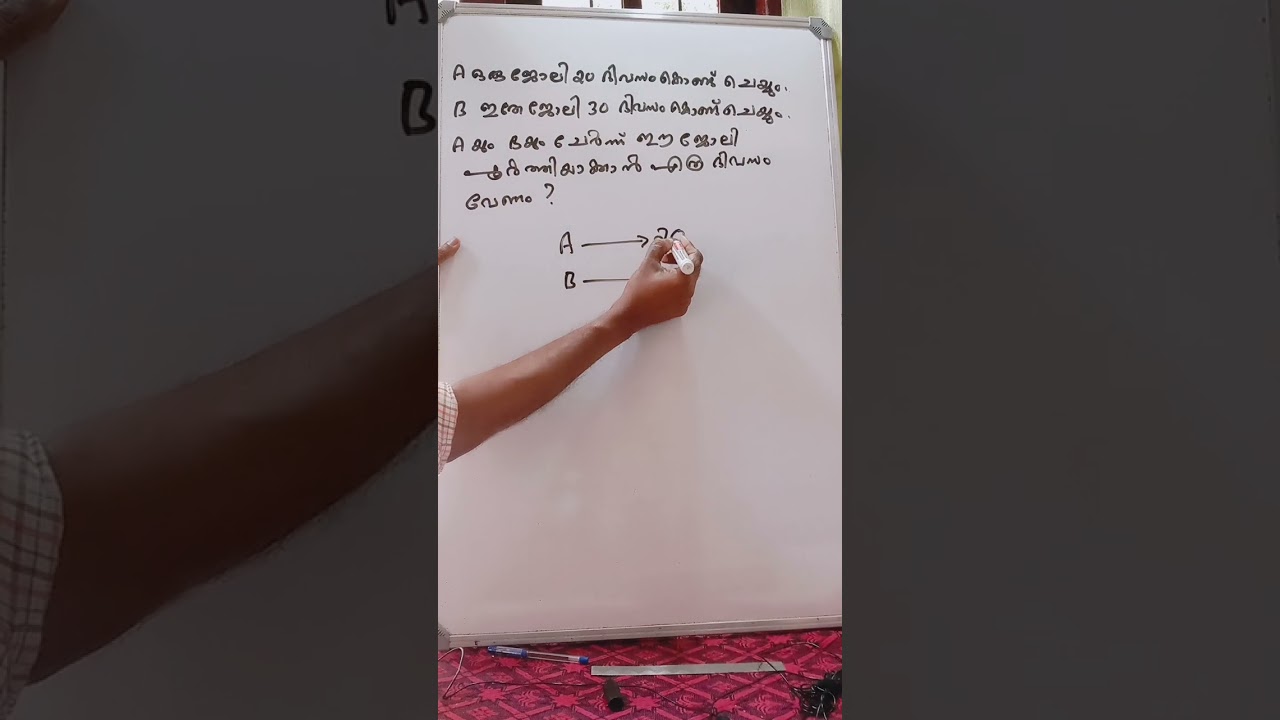 A ഒരു ജോലി 20 ദിവസം കൊണ്ട് ചെയ്യും.
B ഇതേ ജോലി 30 ദിവസം കൊണ്ട് ചെയ്യും.
A യും B യും ചേർന്ന് ഈ ജോലി
പൂർത്തിയാക്കാൻ എത്ര ദിവസം
വേണം ?
A → 20
B